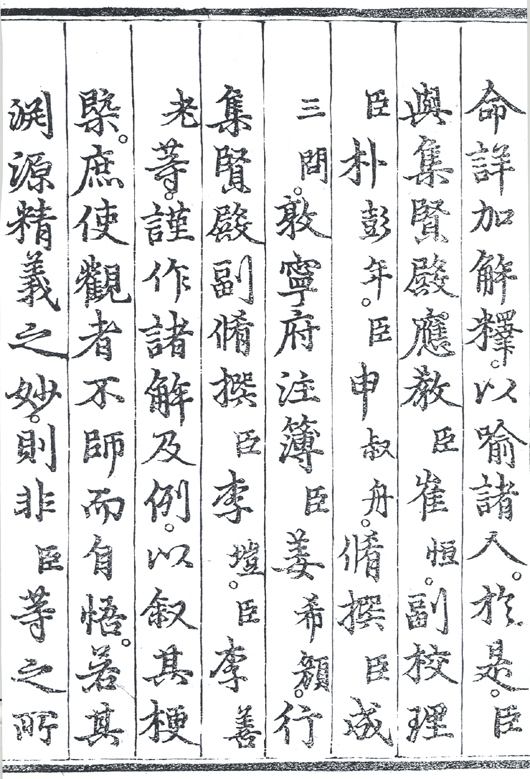 命詳加解釋。以喻諸人。於是。臣
與集賢殿應教臣崔恒。副校理
臣朴彭年。臣申叔舟。脩撰臣成
三問。敦寧府注簿臣姜希顔。行
集賢殿副脩撰臣李塏。臣李善
老等。謹作諸解及例。以叙其梗
槩。庶使觀者不師而自悟。若其
渕源精義之妙。則非臣等之所